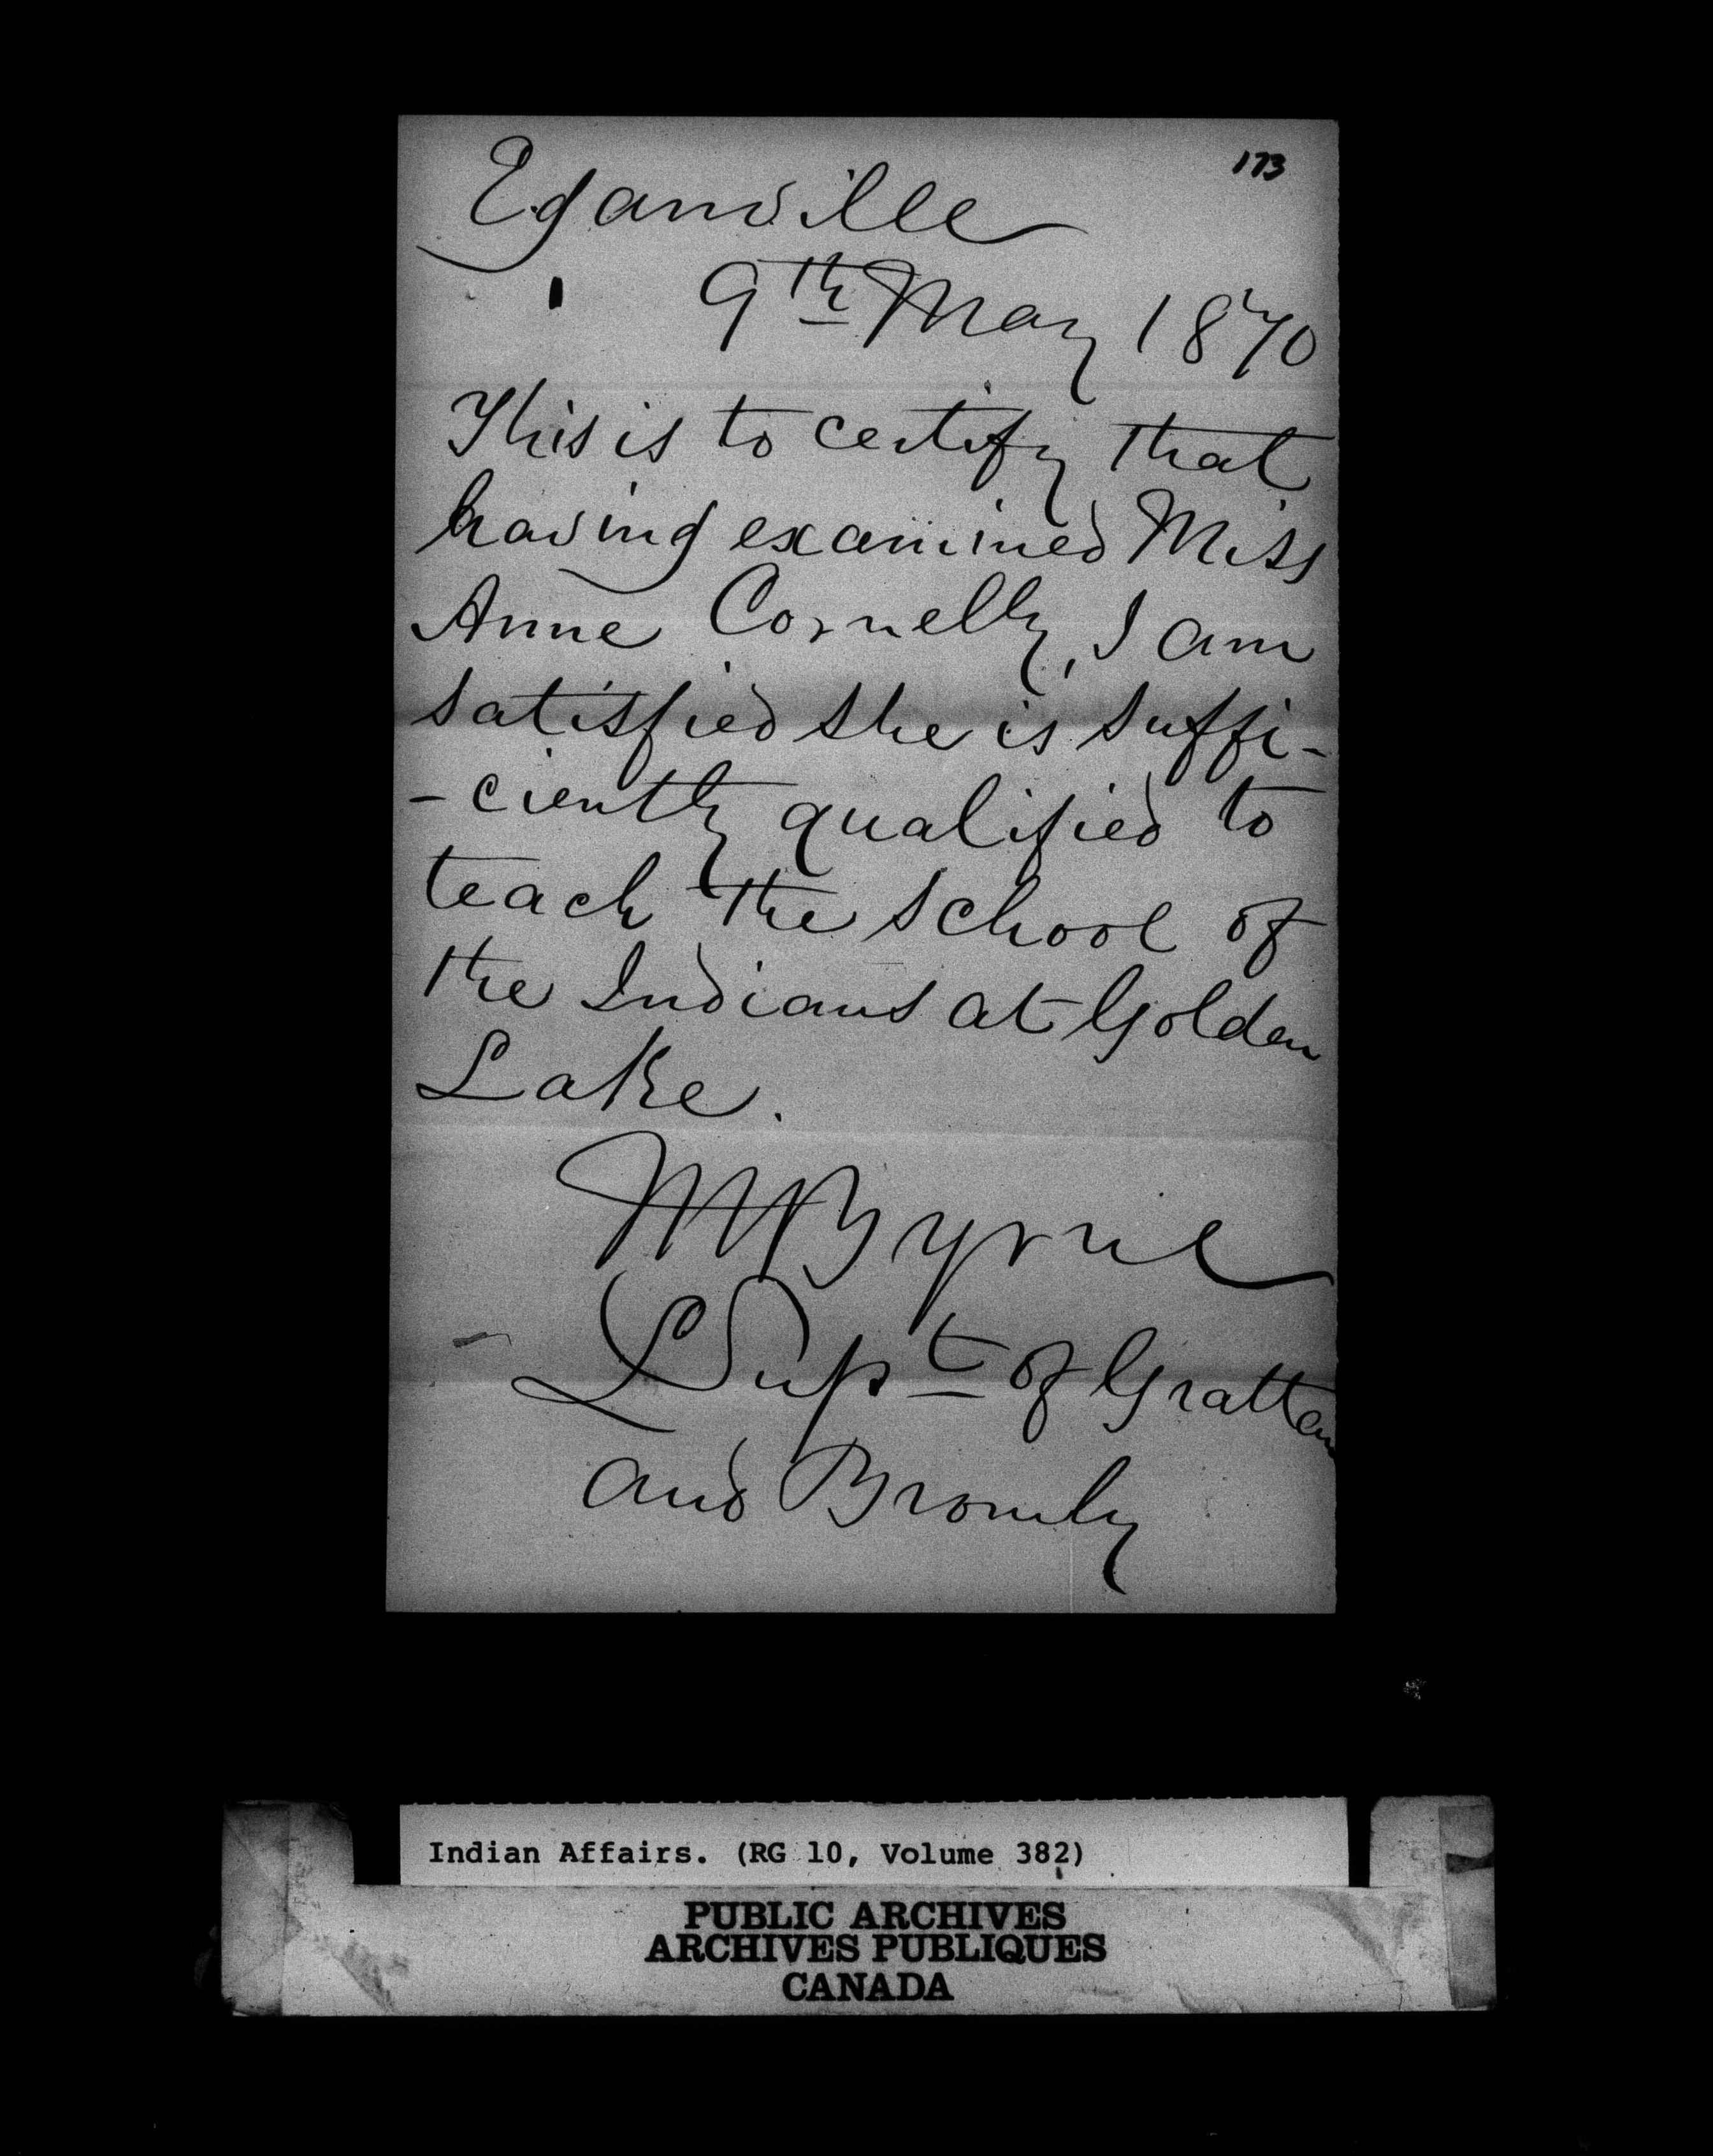 173
Eganville
9th May 1870
This is to certify that
having examined Miss
Anne Cornelly, I am
satisfied she is suffi-
-ciently qualified to
teach the school of
the Indians at Golden
Lake.
M Byrne
L Supt of Grattan
and Bromly
Indian Affairs. (RG 10, Volume 382)
PUBLIC ARCHIVES
ARCHIVES PUBLIQUES
CANADA